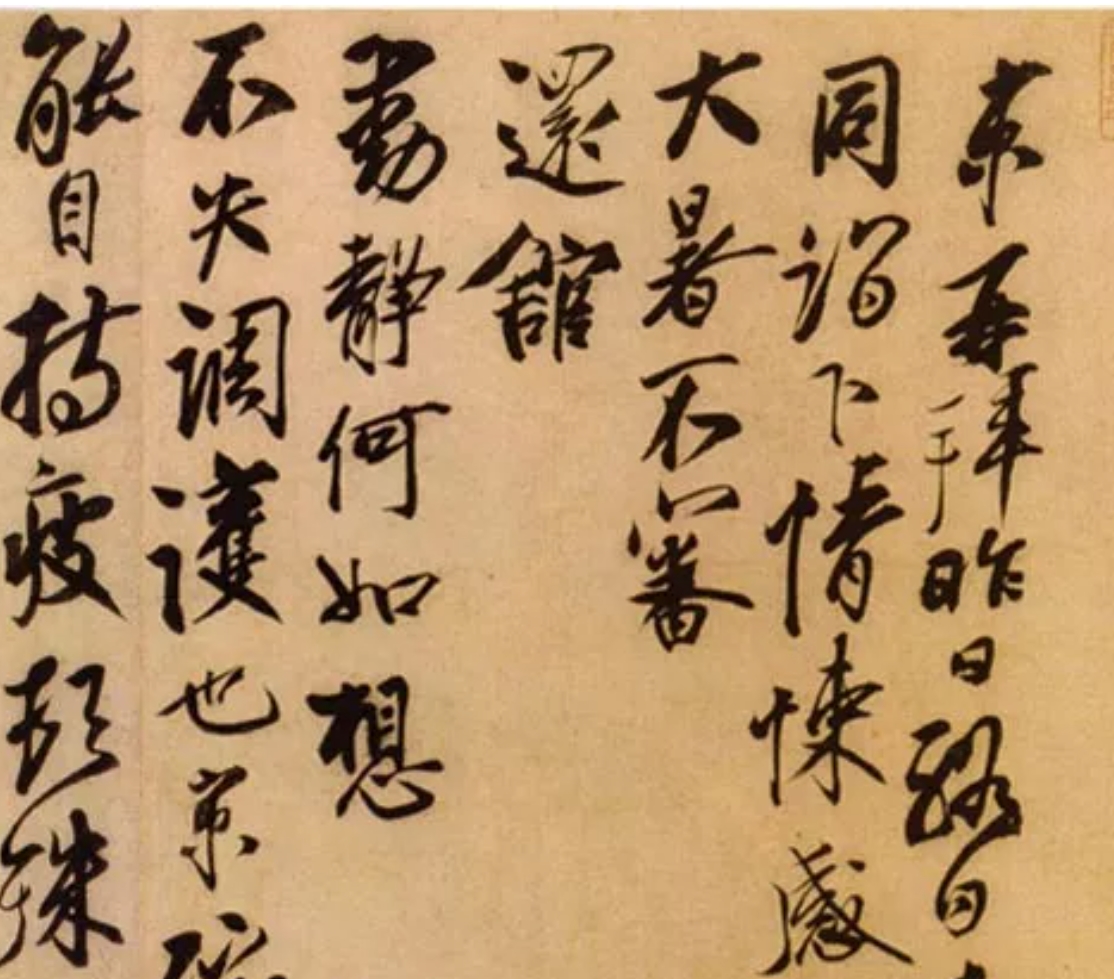 京再拜昨日終日
同詣下情悚感
大暑不審
還館
動靜何如想
不失調護也京
能自持疲頓殊